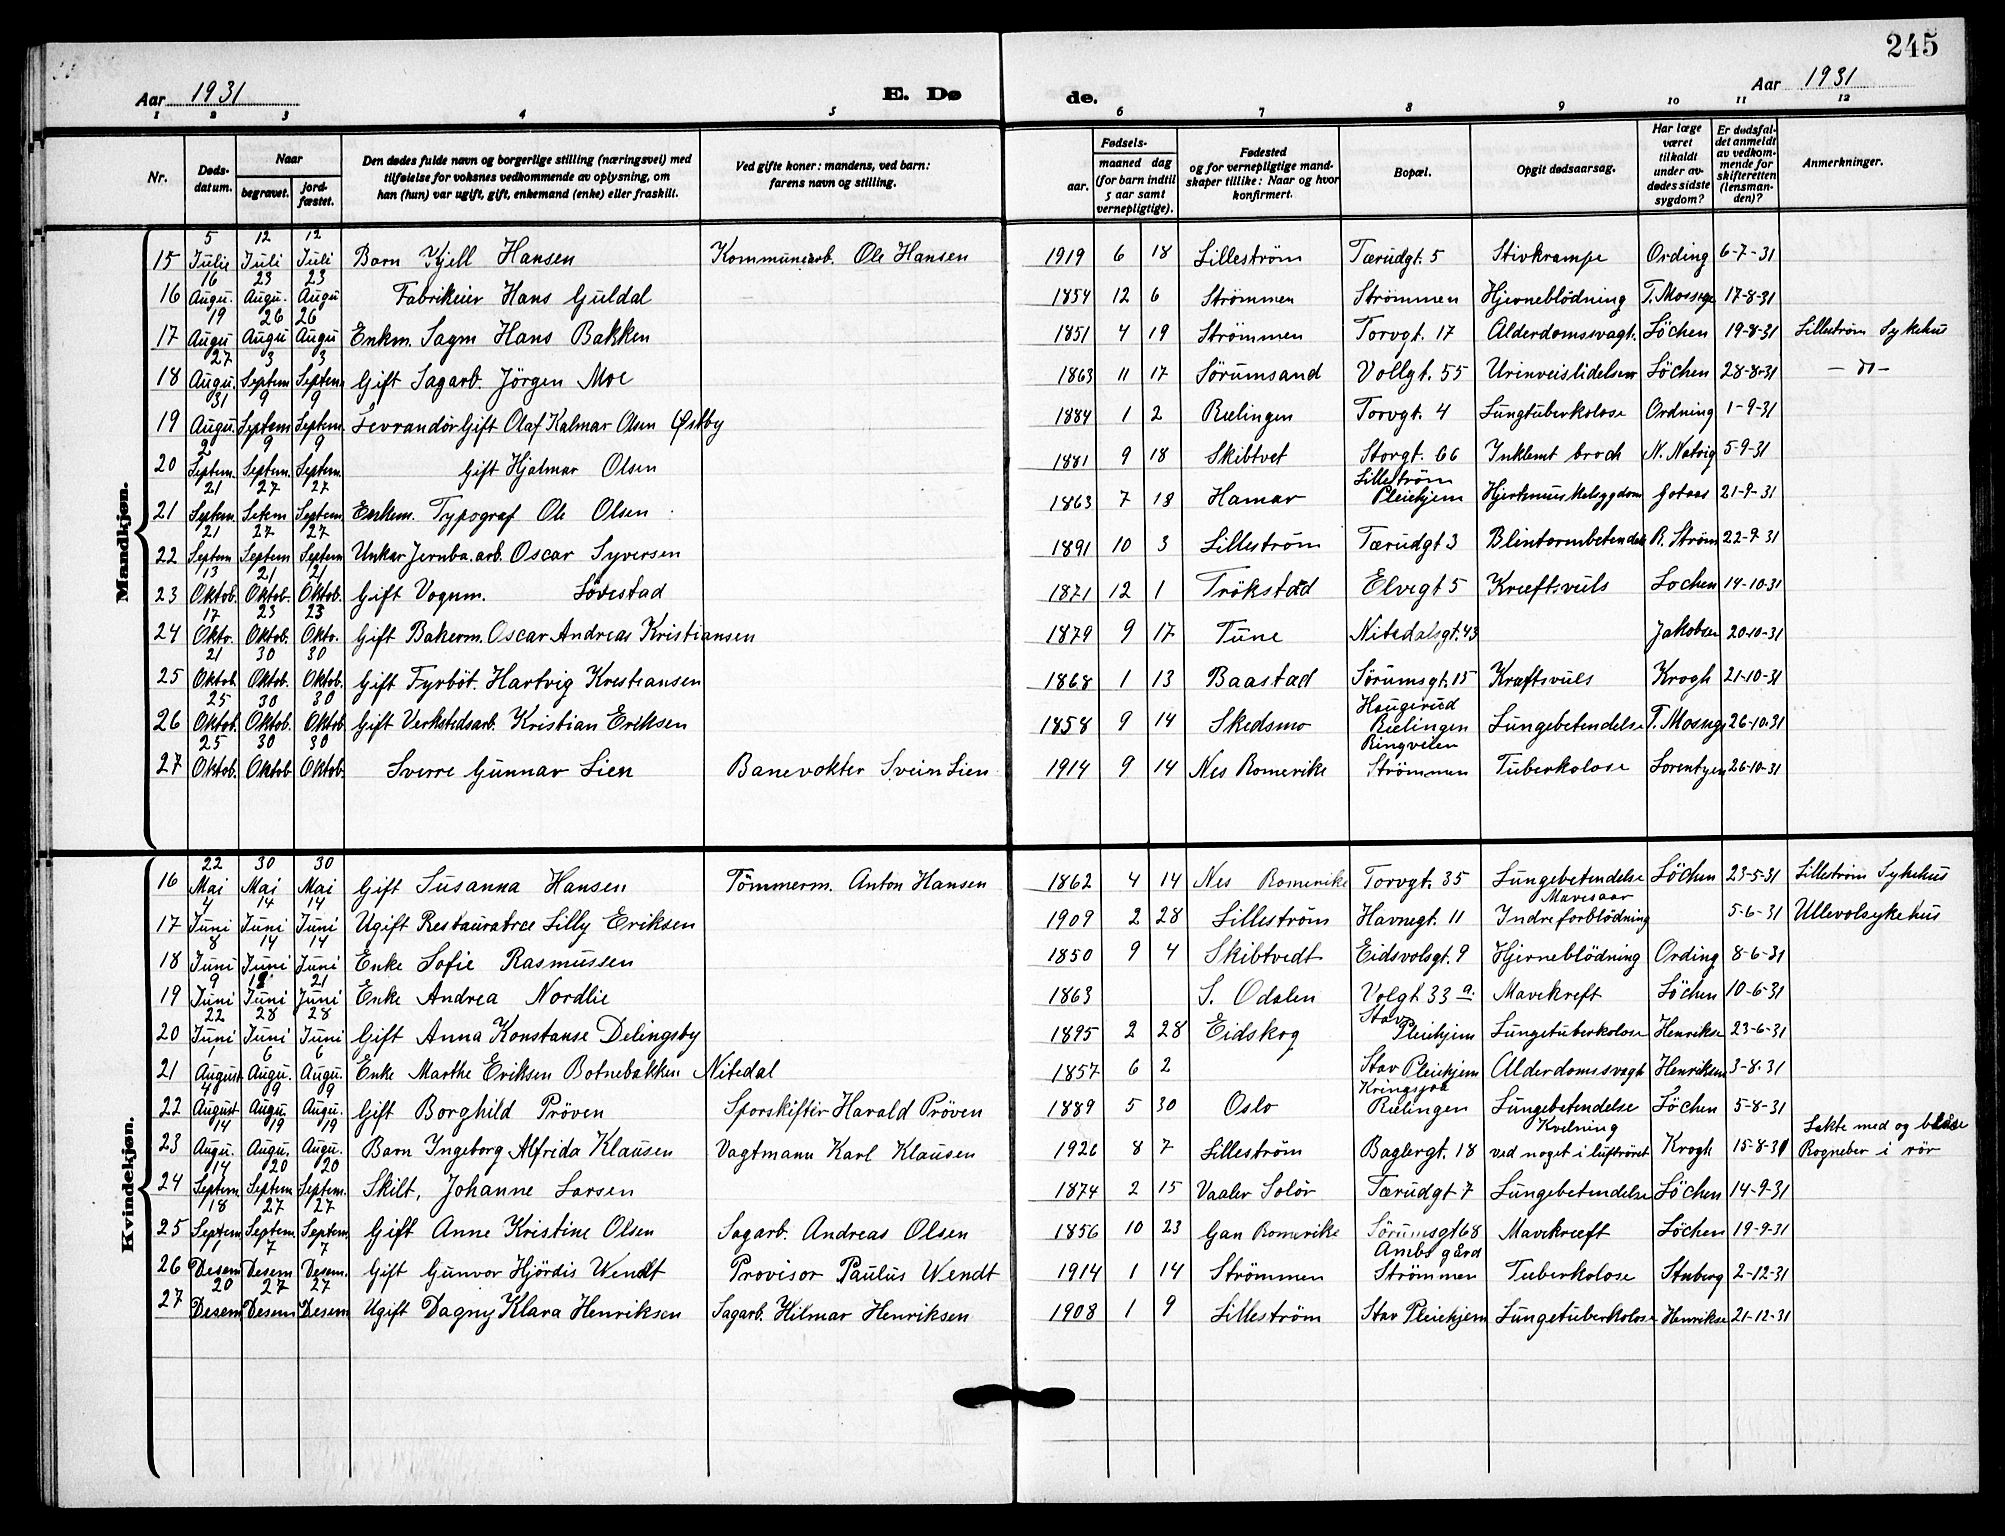 245
Aar 1931 E. Dø de. Aar 1931
1 2 3 4 5 6 7 8 9 10 11 12
Nr. Døds-datum. Naar begravet. jord-fæstet. Den dødes fulde navn og borgerlige stilling (næringsvei) med tilføielse for voksnes vedkommende av oplysning, om han (hun) var ugift, gift, enkemand (enke) eller fraskilt. Ved gifte koner: mandens, ved barn: farens navn og stilling. Fødsels- aar. maaned dag (for barn indtil 5 aar samt vernepligtige). Fødested og for vernepligtige mand-skaper tillike: Naar og hvor konfirmert. Bopæl. Opgit dødsaarsag. Har læge været tilkaldt under av-dødes sidste sygdom? Er dødsfal-det anmeldt av vedkom-mende for skifteretten (lensman-den)? Anmerkninger.
Mandkjøn.
15 5 Julie 12 Juli 12 Juli Barn Kjell Hansen Kommunearb. Ole Hansen 1919 6 18 Lilleström Tærudgt 5 Stivkrampe Ording 6-7-31
16 16 Augu. 23 Augu. 23 Augu Fabrikeier Hans Guldal 1854 12 6 Strömmen Strömmen Hjerneblödning 17-8-31
17 19 Augu 26 Augu 26 Augu Enkm. Sagm Hans Bakken 1851 4 19 Strömmen Torvgt. 17 Alderdomssvagt. Löchen 19-8-31 Lilleström Sykehus
18 27 Augu. 3 Septem 3 Septem. Gift Sagarb. Jörgen Moe 1863 11 17 Sörumsand Vollgt. 55 Urinveislidelser Löchen 28-8-31 - do -
19 31 Augu. 9 Septem 9 Septem. Levrandör Gift Olaf Kalmar Olsen Østby 1884 1 2 Rælingen Torvgt. 4 Lungtuberkolose Ordning 1-9-31
20 2 Septem. 9 Septem. 9 Septem. Gift Hjalmar Olsen 1881 9 18 Skibtvet Storgt. 66 Inklemt broch N. Natvig 5-9-31
21 21 Septem. 27 Setem 27 Septem Enkem. Typograf Ole Olsen 1863 7 18 Hamar Lilleström Pleiehjem Hjertmuskelsygdom Gotaas 21-9-31
22 21 Septem 27 Septem 27 Septem Unkar Jernba.arb. Oscar Syversen 1891 10 3 Lilleström Tærudgt 3 Blintarmbetendels R. Ström 22-9-31
23 13 Oktob. 21 Oktob. 21 Oktob. Gift Vognm. Lövestad 1871 12 1 Trökstad Elvegt 5 Kræftsvuls Lochen 14-10-31
24 17 Okto. 23 Oktob. 23 Okto. Gift Bakerm. Oscar Andreas Kristiansen 1879 9 17 Tune Nitedalsgt. 43 Jakobsen 20-10-31
25 21 Oktob. 30 Oktob. 30 Oktob. Gift Fyrböt. Hartvig Krestiansen 1868 1 13 Baastad Sörumsgt. 15 Kraftsvuls Krogh 21-10-31
26 25 Oktob. 30 Oktob. 30 Oktob Gift Verkstedsarb. Kristian Eriksen 1858 9 14 Skedsmo Haugerud Rælingen Lungebetendelse 26-10-31
27 25 Oktob. 30 Oktob 30 Oktob. Sverre Gunnar Lien Banevokter Svein Lien 1914 9 14 Nes Romerike Ringveien Strömmen Tuberkolose Lorentzen 26-10-31
Kvindekjøn.
16 22 Mai 30 Mai 30 Mai Gift Susanna Hansen Tömmerm. Anton Hansen 1862 4 14 Nes Romerike Torvgt. 35 Lungebetendelse Löchen 23-5-31 Lilleström Sykehus
17 4 Juni 14 Juni 14 Juni Ugift Restauratrce Lilly Eriksen 1909 2 28 Lilleström Havnegt. 11 Mavesaar Indre forblödning 5-6-31 Ullevolsykehus
18 8 Juni 14 Juni 14 Juni Enke Sofie Rasmussen 1850 9 4 Skibtvedt Eidsvolsgt. 9 Hjerneblödning Ording 8-6-31
19 9 Juni Juni 21 Juni Enke Andrea Nordlie 1863 S. Odalen Volgt 33 a. Mavekreft Löchen 10-6-31
20 22 Juni 28 Juni 28 Juni Gift Anna Konstanse Delingsby 1895 2 28 Eidskog Stav Pleiehjem Lungetuberkolose Henrikse 23-6-31
21 1 August 6 Augu. 6 Augu. Enke Marthe Eriksen Botnebakken Nitedal 1857 6 2 Stav Pleiehjem Alderdomssvagh Henriksen 3-8-31
22 4 August 9 Augu. 9 Augu. Gift Borghild Pröven Sporskifter Harald Pröven 1889 5 30 Oslo Kringsjoa Rælingen Lungebetendelse Löchen 5-8-31
23 14 Augu. 19 Augu. 19 Augu. Barn Ingeborg Alfreda Klausen Vagtmann Karl Klausen 1926 8 7 Lilleström Baglergt. 18 Kvelning ved noget i luftröret Krogh 15-8-31 Lekte med og blåse Rogneber i rör
24 14 Septem 20 Septem 20 Septem. Skilt, Johanne Larsen 1874 2 15 Vaaler Solör Tærudgt 7 Lungebetendelse Löchen 14-9-31
25 18 Septem 27 Septem. 27 Septem. Gift Anne Kristine Olsen Sagarb. Andreas Olsen 1856 10 23 Gan Romerike Sörumsgt 68 Mavekræft Löchen 19-9-31
26 1 Desem 7 Desem 7 Desem. Gift Gunvor Hjördis Wendt Provisor Paulus Wendt 1914 1 14 Strömmen Ambs gård Strömmen Tuberkolose Stuberg 2-12-31
27 20 Desem 27 Desem 27 Desem Ugift Dagny Klara Henriksen Sagarb. Hilmar Henriksen 1908 1 9 Lilleström Stav Pleiehjem Lungetuberkolose Henrikse 21-12-31